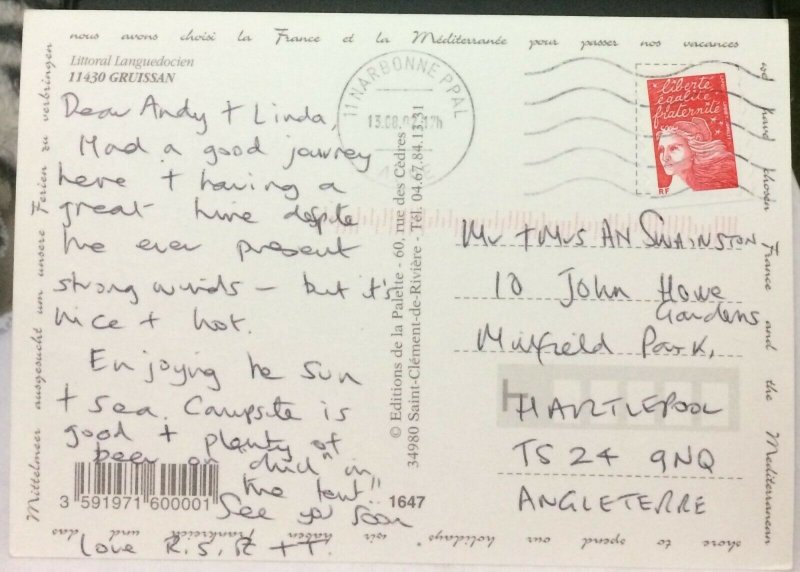 nous avons choisi la France et la Méditerranée pour passer nos vacances
we have chosen France and the Mediterranean
shore to spend our holidays
wir haben Frankreich und das
Mittelmeer ausgesucht um unsere Ferien zu verbringen
Littoral Languedocien
11430 GRUISSAN
Dear Andy + Linda,
Had a good journey
here + having a
great time despite
the ever present
strong winds – but it's
nice + hot.
Enjoying the sun
+ sea. Campsite is
good + plenty of
beer on "chill" in
the tent!!
See you soon
Love R, S, +T.
3 591971 600001
1647
© Editions de la Palette - 60, rue des Cèdres
34980 Saint-Clément-de-Rivière - Tél. 04.67.84.13.31
11 NARBONNE PPAL
liberté
égalité
fraternité
RF
Mr + Mrs AN SWAINSTON
10 John Howe
Gardens
Milfield Park,
HARTLEPOOL
TS24 9NQ
ANGLETERRE